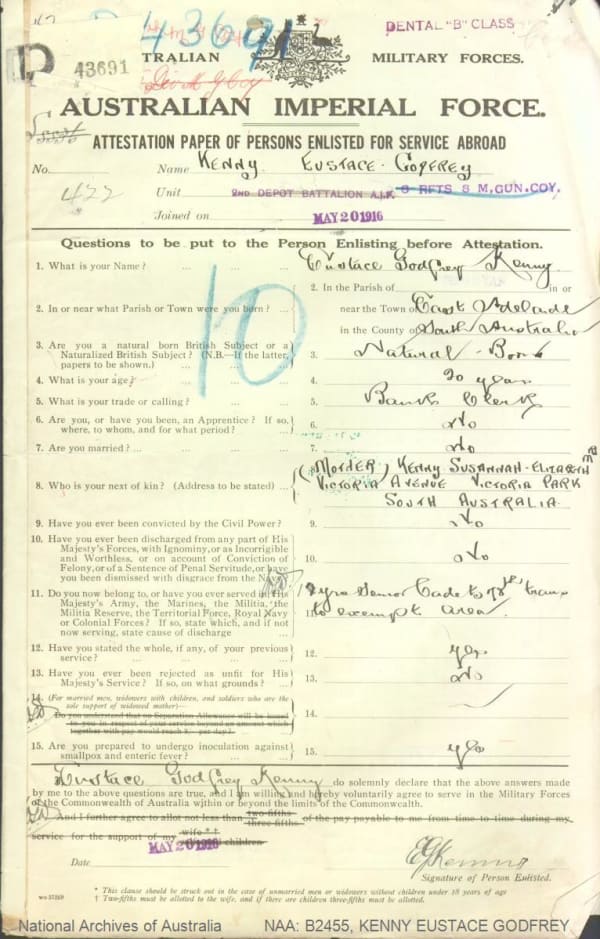 43691
DENTAL "B" CLASS
D 43691
TRALIAN MILITARY FORCES.
AUSTRALIAN IMPERIAL FORCE.
ATTESTATION PAPER OF PERSONS ENLISTED FOR SERVICE ABROAD
No. Name KENNY EUSTACE GODFREY
477 Unit 2ND DEPOT BATTALION A.I.F. 8 RFTS 8 M. GUN. COY.
Joined on MAY 20 1916
Questions to be put to the Person Enlisting before Attestation.
10
1. What is your Name? ... ... ... 1. Eustace Godfrey Kenny
2. In or near what Parish or Town were you born? ... 2. In the Parish of in or
near the Town of East Adelaide
in the County of South Australia
3. Are you a natural born British Subject or a
Naturalized British Subject? (N.B.—If the latter,
papers to be shown.) ... ... 3. Natural-Born
4. What is your age? ... ... ... 4. 20 years
5. What is your trade or calling? ... ... 5. Bank Clerk
6. Are you, or have you been, an Apprentice? If so,
where, to whom, and for what period? ... 6. No
7. Are you married? ... ... ... 7. No
8. Who is your next of kin? (Address to be stated) ... 8. (MOTHER) KENNY SUSANNAH-ELIZABETH MRS
VICTORIA AVENUE VICTORIA PARK
SOUTH AUSTRALIA
9. Have you ever been convicted by the Civil Power? 9. No
10. Have you ever been discharged from any part of His
Majesty's Forces, with Ignominy, or as Incorrigible
and Worthless, or on account of Conviction of
Felony, or of a Sentence of Penal Servitude, or have
you been dismissed with disgrace from the Navy? 10. No
11. Do you now belong to, or have you ever served in, His
Majesty's Army, the Marines, the Militia, the
Militia Reserve, the Territorial Force, Royal Navy
or Colonial Forces? If so, state which, and if not
now serving, state cause of discharge 11. 2 yrs Senior Cadets 78th trans
to exempt area.
12. Have you stated the whole, if any, of your previous
service? ... ... ... 12. yes
13. Have you ever been rejected as unfit for His
Majesty's Service? If so, on what grounds? ... 13. No
14. (For married men, widowers with children, and soldiers who are the
sole support of widowed mother)—
Do you understand that no Separation Allowance will be issued
to you in respect of your service beyond an amount which
together with pay would reach 8s. per day? ... 14.
15. Are you prepared to undergo inoculation against
smallpox and enteric fever? ... ... 15. yes
I, Eustace Godfrey Kenny do solemnly declare that the above answers made
by me to the above questions are true, and I am willing and hereby voluntarily agree to serve in the Military Forces
of the Commonwealth of Australia within or beyond the limits of the Commonwealth.
And I further agree to allot not less than two-fifths three-fifths of the pay payable to me from time to time during my
service for the support of my wife * † children
Date MAY 20 1916
EGKenny
Signature of Person Enlisted.
* This clause should be struck out in the case of unmarried men or widowers without children under 18 years of age
† Two-fifths must be allotted to the wife, and if there are children three-fifths must be allotted.
National Archives of Australia NAA: B2455, KENNY EUSTACE GODFREY